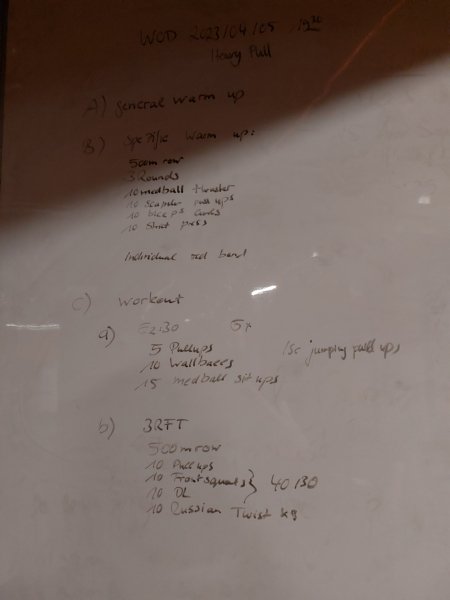 WOD 2023/04/05 19:30
Heavy Pull
A) general warm up
B) Specific warm up:
500m row
3 Rounds
10 medball thruster
10 Scapular push ups
10 biceps curls
10 Strict press
Individual red band
C) workout
a) E2:30 5x
5 Pullups 15c jumping pull ups
10 Wallballs
15 medball sit ups
b) 3RFT
500m row
10 Pull ups
10 Frontsquats
10 DL } 40/30
10 Russian Twist kg